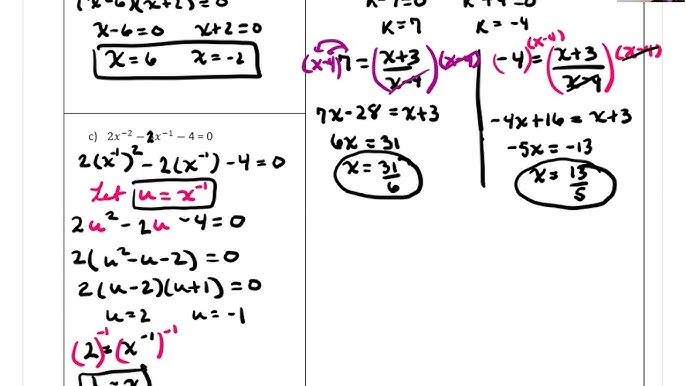 x-6=0 x+2=0
x=6 x=-2
c) 2x⁻² - 2x⁻¹ - 4 = 0
2(x⁻¹)² - 2(x⁻¹) - 4 = 0
Let u = x⁻¹
2u² - 2u - 4 = 0
2(u² - u - 2) = 0
2(u-2)(u+1) = 0
u=2 u=-1
(2)⁻¹ = (x⁻¹)⁻¹
K=7 K=-4
(x-4) 7 = (x+3/x-4)(x-4)
7x-28 = x+3
6x = 31
x = 31/6
(x-4)(-4) = (x+3/x-4)(x-4)
-4x+16 = x+3
-5x = -13
x = 13/5